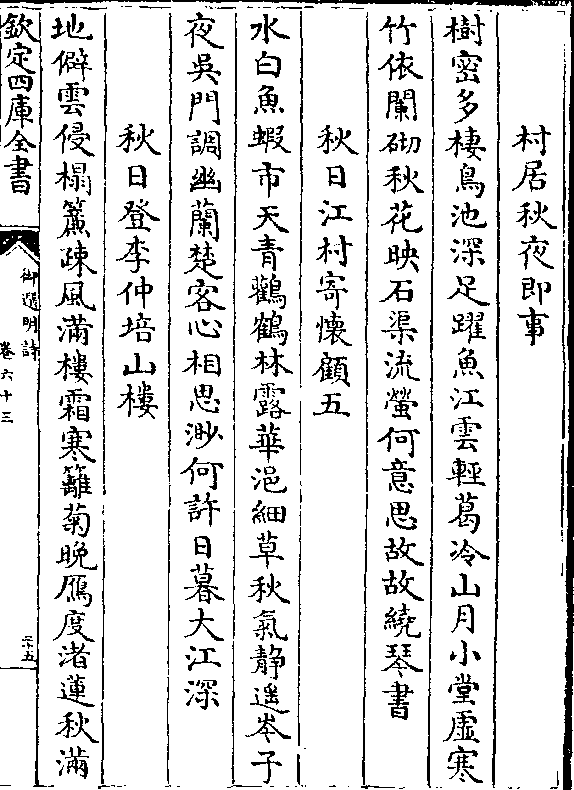 村居秋夜即事
樹密多棲鳥池深足躍魚江雲輕葛冷山月小堂虛寒
竹依闌砌秋花映石渠流螢何意思故故繞琴書
秋日江村寄懷顧五
水白魚蝦市天青鸛鶴林露華浥細草秋氣静遥岑子
夜吳門調幽蘭楚客心相思渺何許日暮大江深
秋日登李仲培山樓
地僻雲侵榻簾疎風滿樓霜寒籬菊晚鴈度渚蓮秋滿
欽定四庫全書
御選明詩
卷六十三
三十五